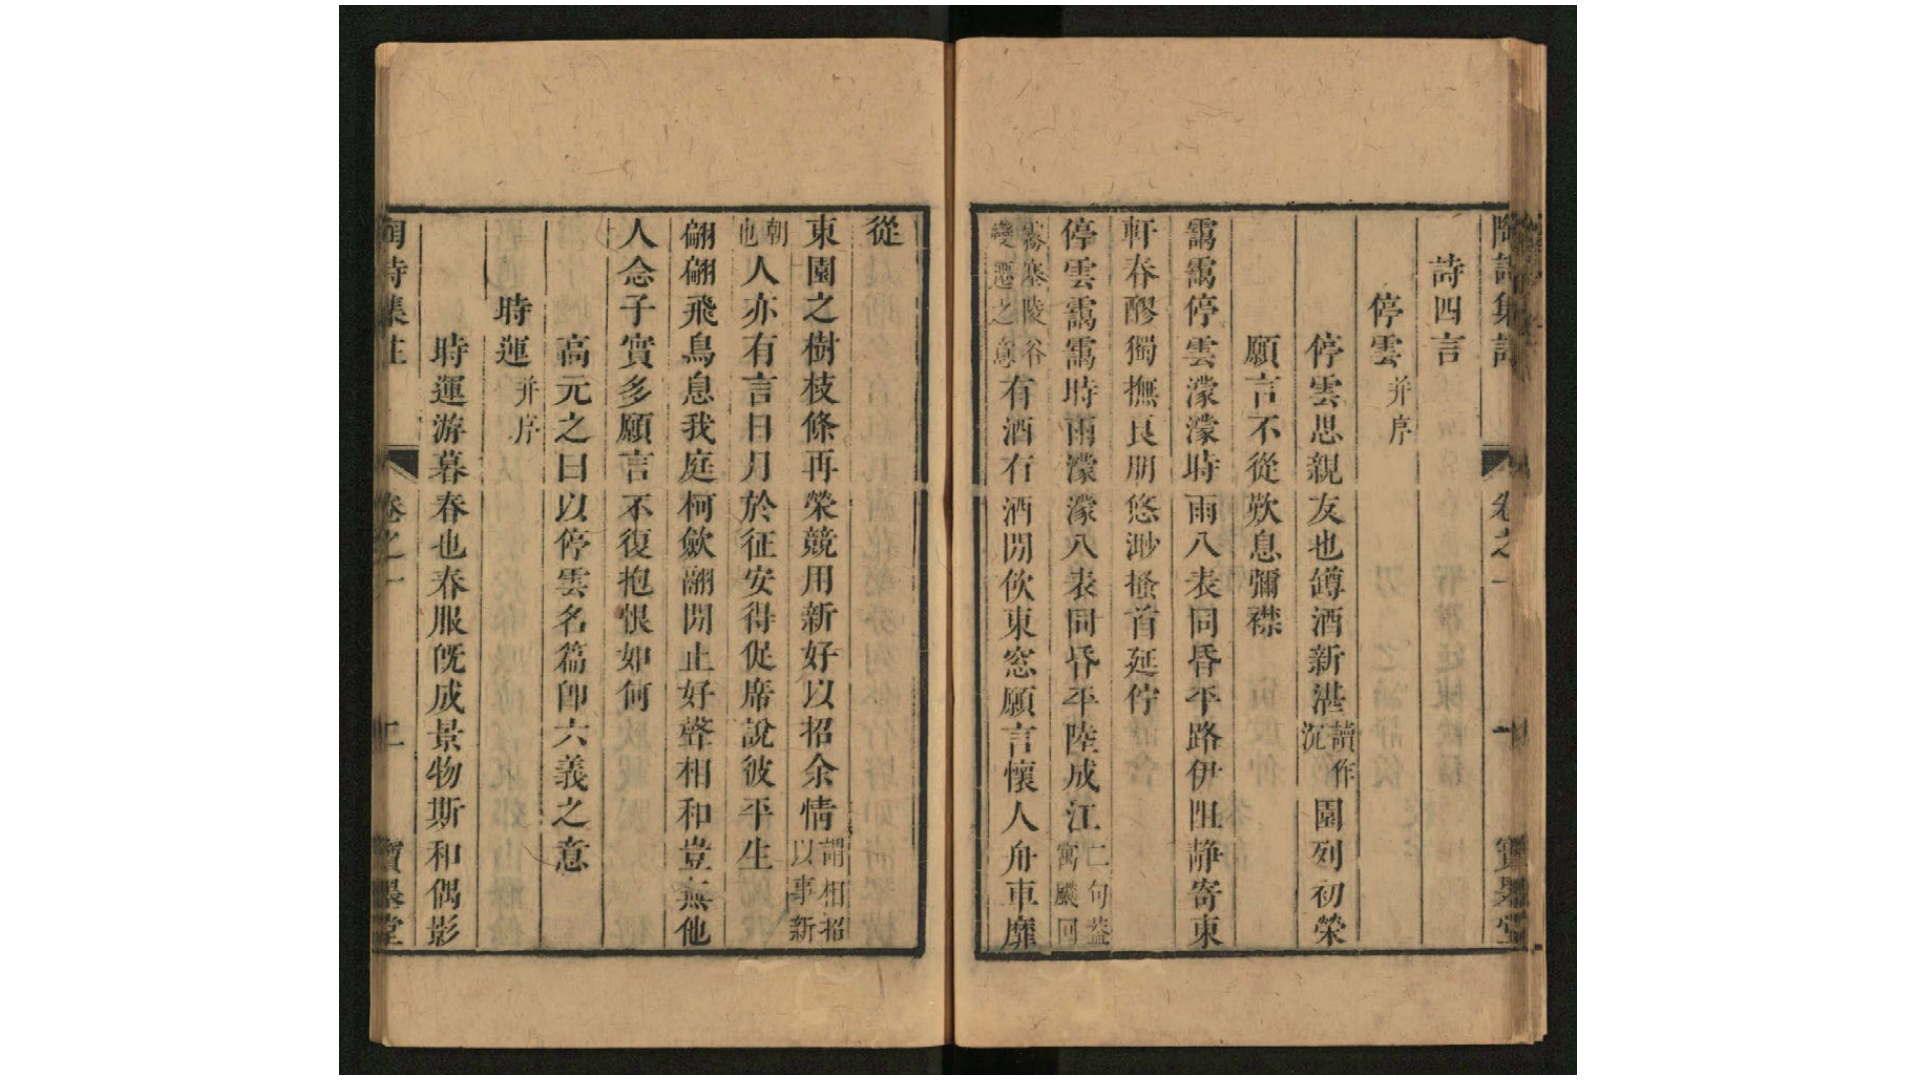 陶詩集註 卷之一 一 寶墨堂
詩四言
停雲并序
停雲思親友也罇酒新湛讀作沉園列初榮
願言不從歎息彌襟
靄靄停雲濛濛時雨八表同昏平路伊阻静寄東
軒春醪獨撫良朋悠渺搔首延佇
停雲靄靄時雨濛濛八表同昏平陸成江二句蓋寓飈回
霧塞陵谷變遷之意有酒有酒閒飲東窓願言懷人舟車靡
從
東園之樹枝條再榮競用新好以招余情謂相招以事新
朝也人亦有言日月於征安得促席說彼平生
翩翩飛鳥息我庭柯歛翮閒止好聲相和豈無他
人念子實多願言不復抱恨如何
高元之曰以停雲名篇卽六義之意
時運并序
時運游暮春也春服旣成景物斯和偶影
陶詩集註 卷之一 二 寶墨堂